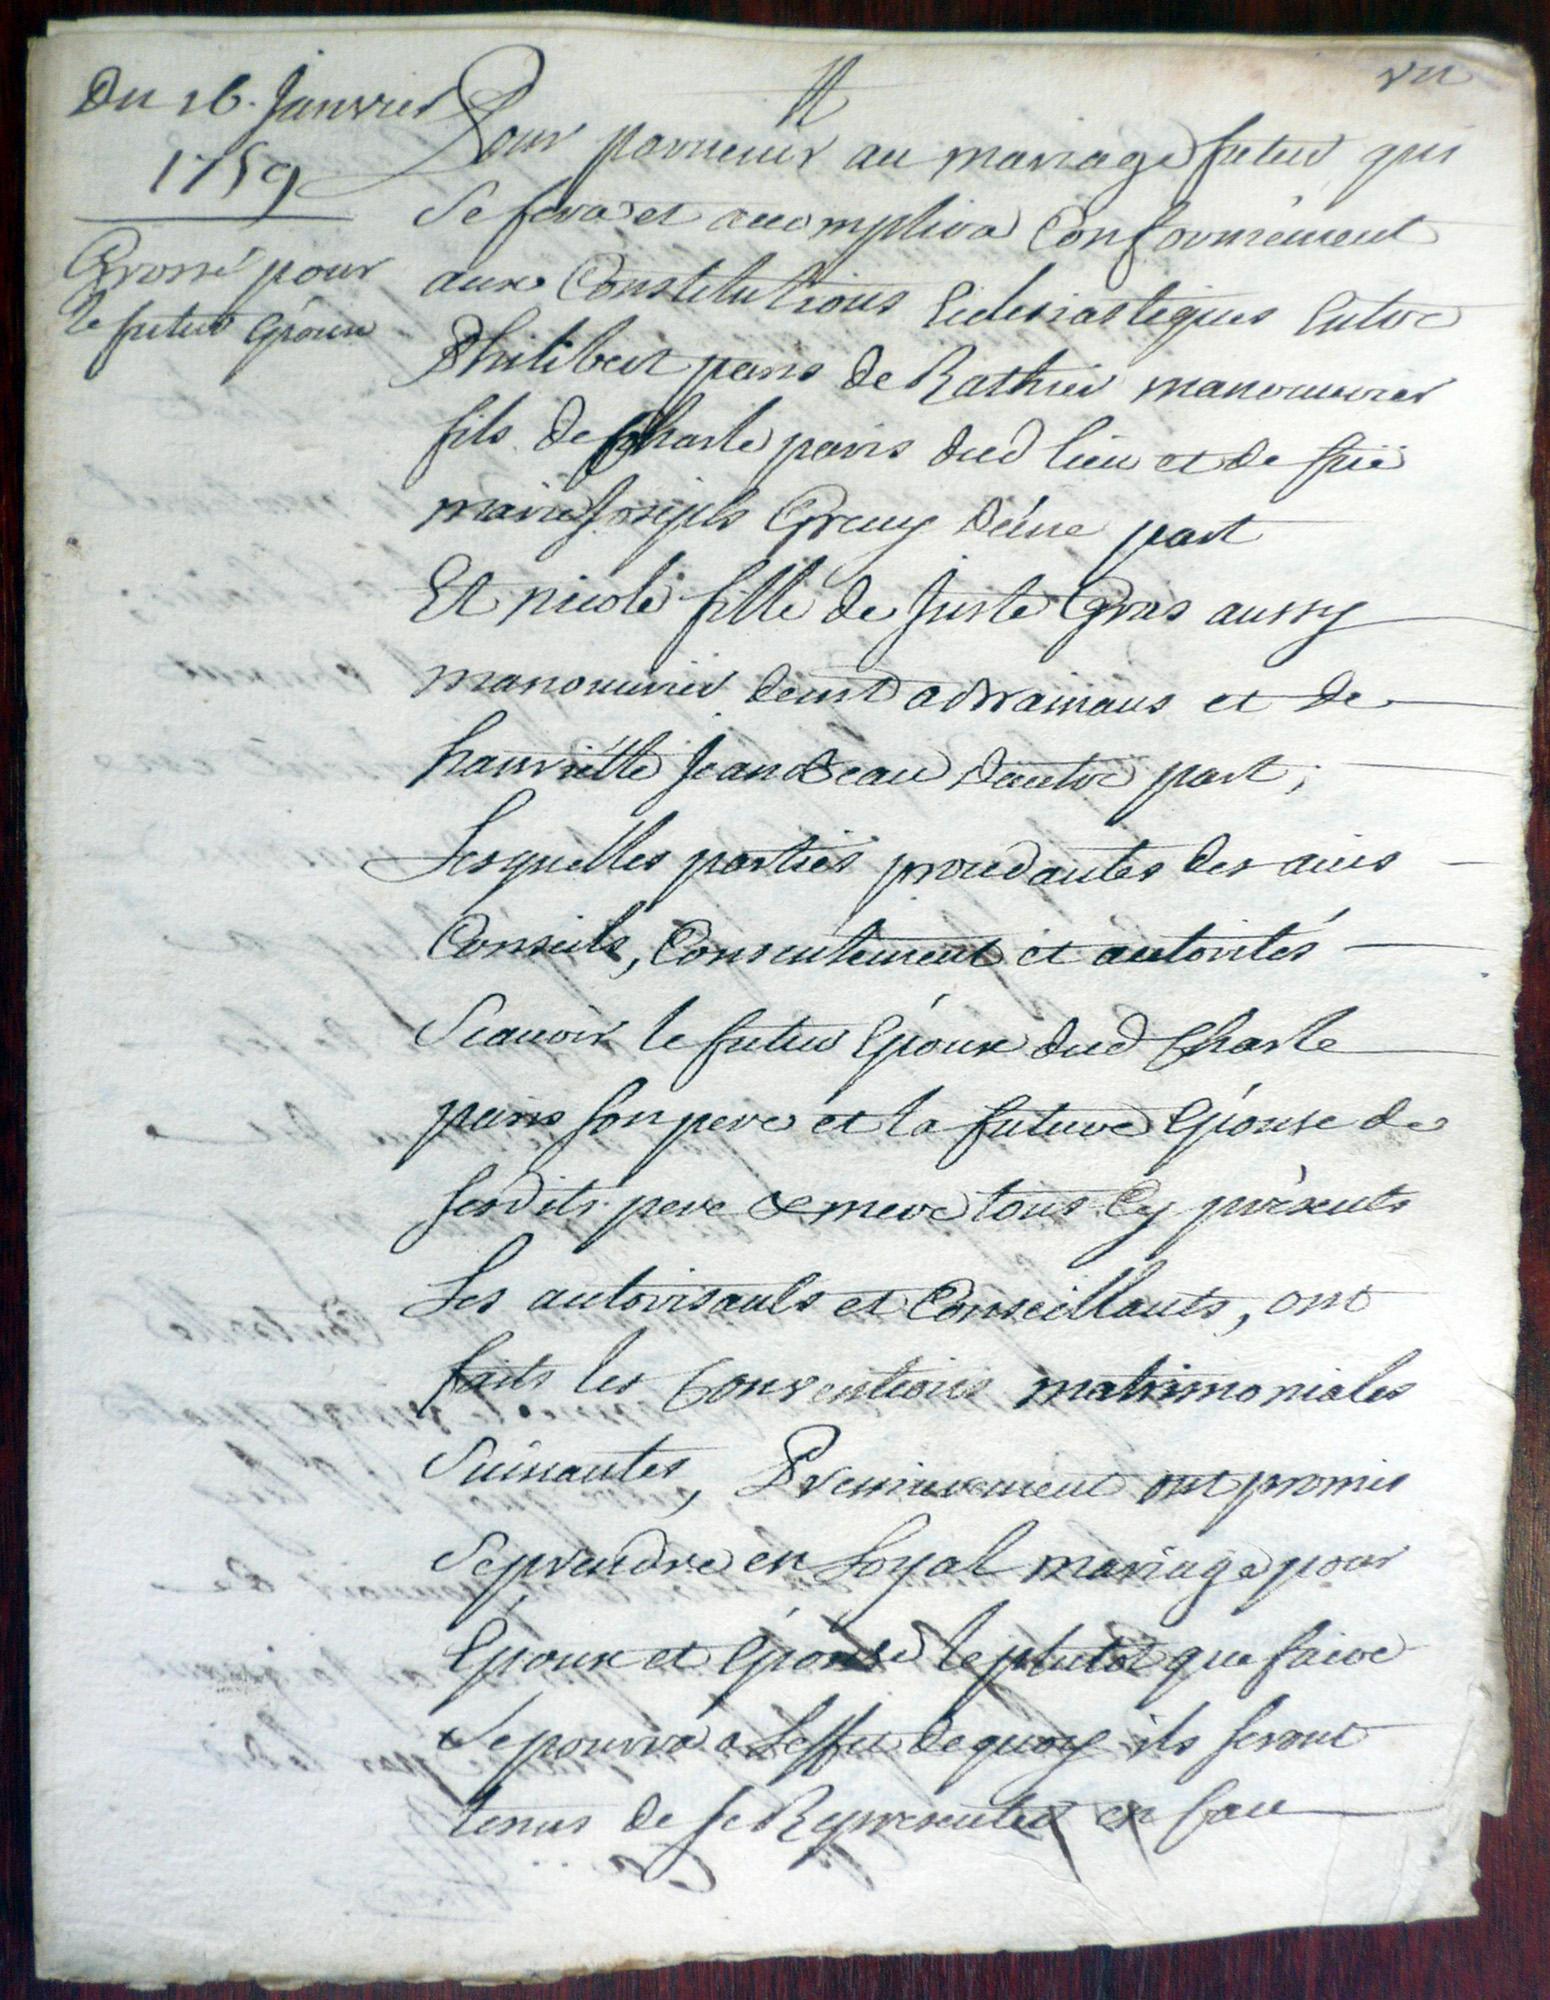 Du 16. Janvier
1759
Grossé pour
le futur Epoux
Pour parvenir au mariage futur qui
Se fera et accomplira Conformément
aux Constitutions Eclesiastiques Entre
Philibert paris de Rathier manouvrier
fils de Charle paris dud lieu et de
marie Joseph d'une part
Et nicole fille de Juste Gras aussy
manouvrier demt a et de
hanriette Jeandeau d'autre part,
Lesquelles parties proced antes des avis
Conseils, Consentement et autorités
Scavoir le futur Epoux dud Charle
paris son pere et la future Epouse de
sesdits pere & mere tous Cy présents
Les autorisants et Conseillants, ont
faits les Conventions matrimoniales
Suivantes, Premierement ont promis
Se prendre en Loyal mariage pour
Epoux et Epouse le plutot que faire
Se pourra a Leffet de quoy ils seront
tenus de se Représenter en face